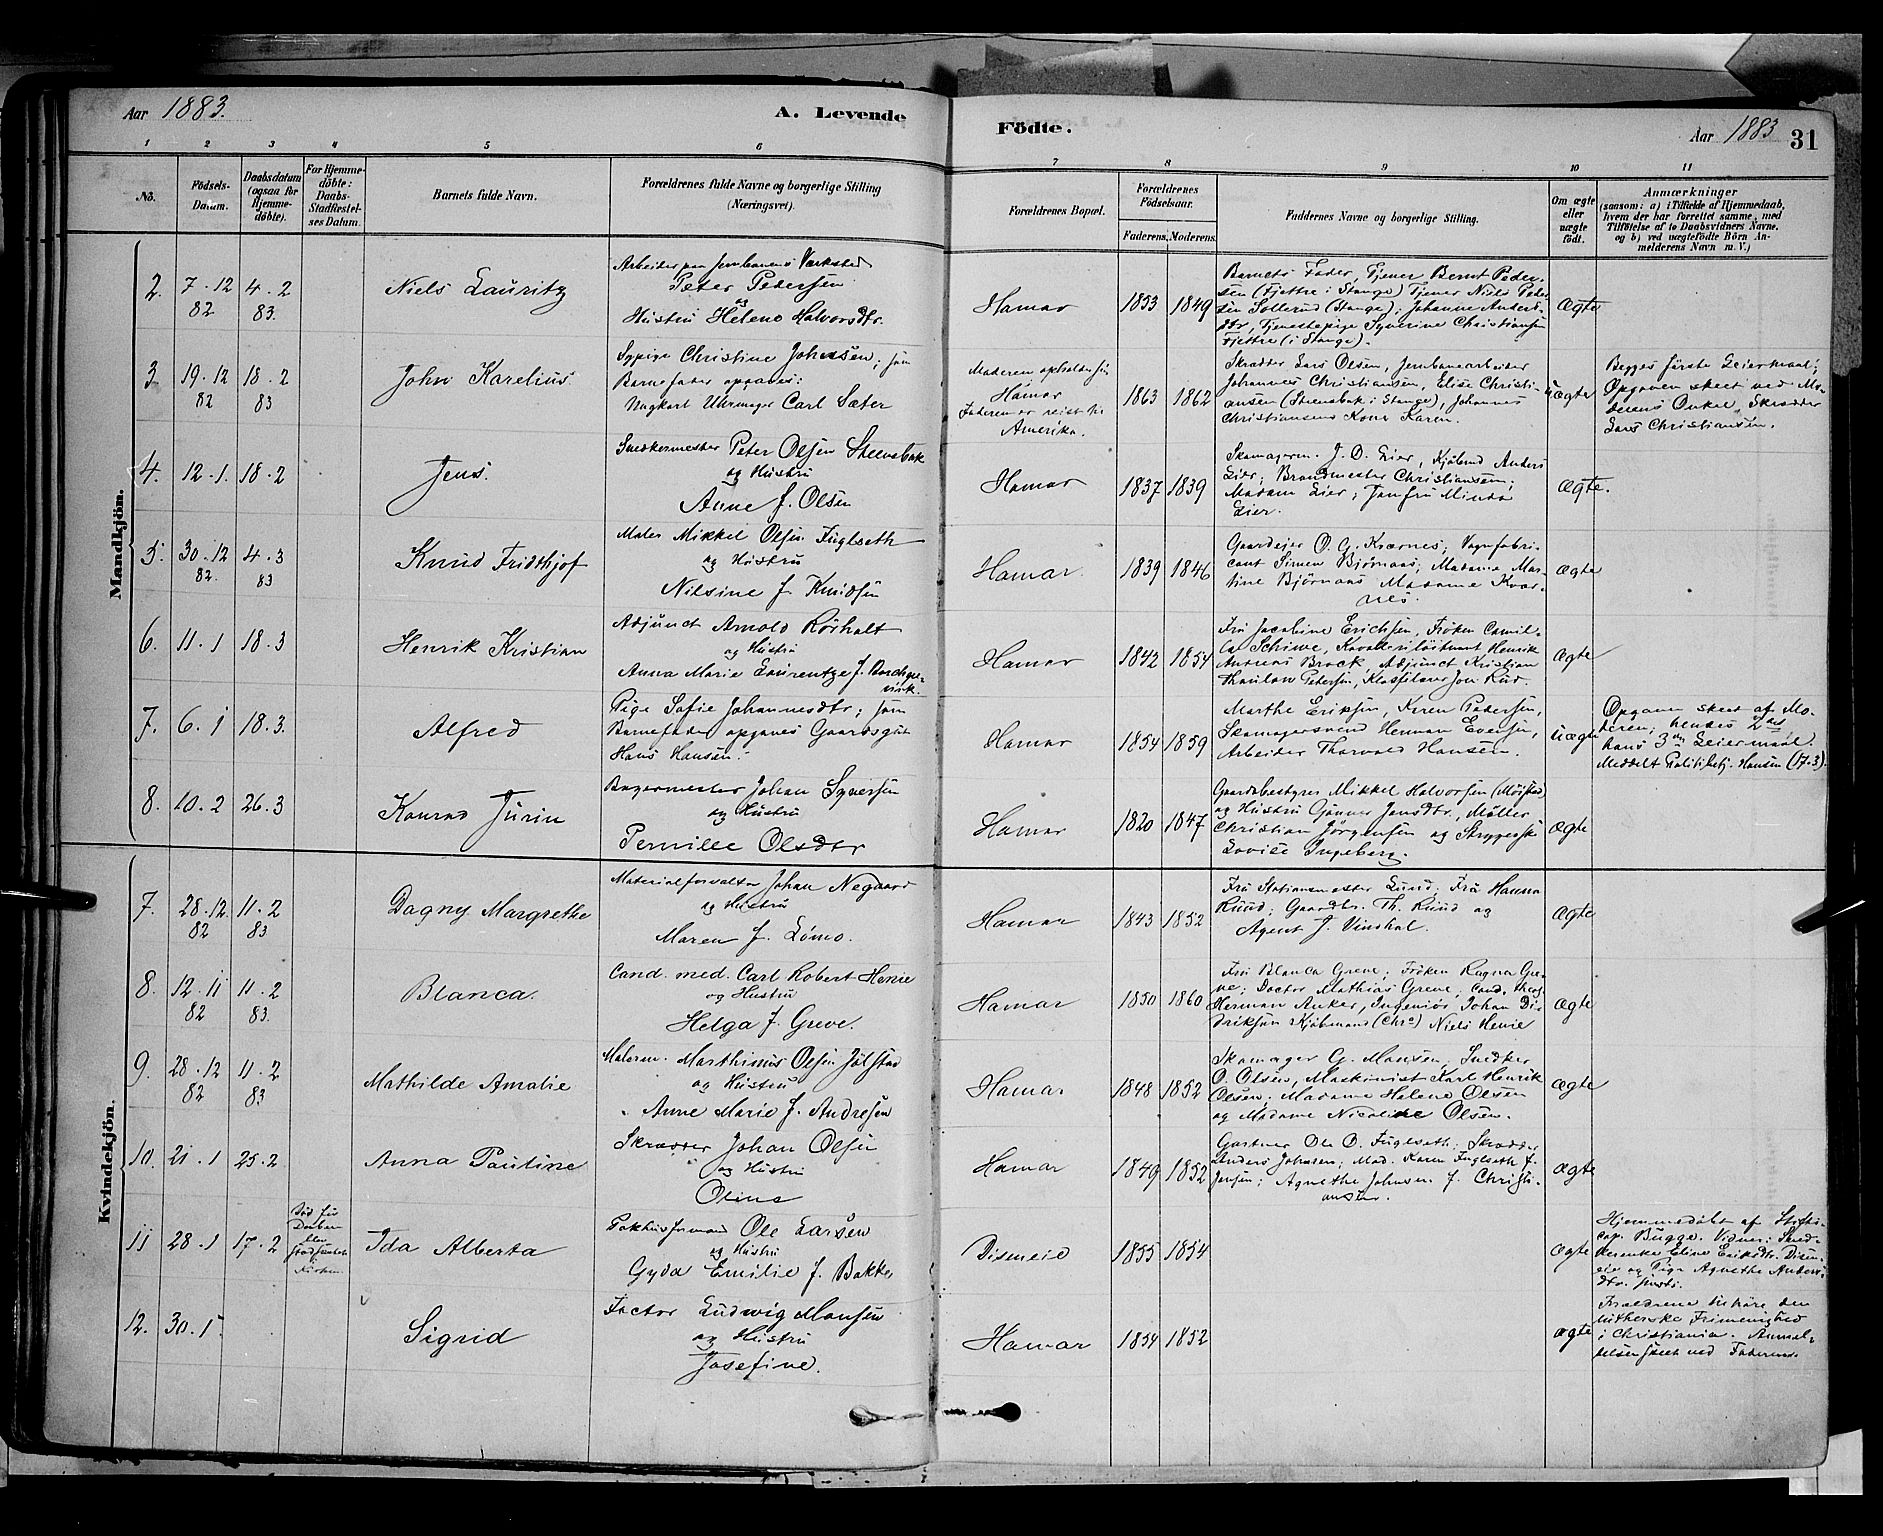 Aar 1883.
A. Levende
Födte.
Aar 1883
31
1 2 3 4 5 6 7 8 9 10 11
No.
Födsels-
Datum.
Daabsdatum
(ogsaa for
Hjemme-
döbte).
For Hjemme-
döbte:
Daabs-
Stadfæstel-
ses Datum.
Barnets fulde Navn.
Forældrenes fulde Navne og borgerlige Stilling
(Næringsvei).
Forældrenes Bopæl.
Forældrenes
Födselsaar.
Faderens. Moderens.
Faddernes Navne og borgerlige Stilling.
Om ægte
eller
uægte
født.
Anmærkninger
(saasom: a) i Tilfælde af Hjemmedaab,
hvem der har forrettet samme, med
Tilföielse af to Daabsvidners Navne.
og b) ved uægtefödte Börn An-
melderens Navn m. V.)
Mandkjön.
2. 7-12
82
4-2
83.
Niels Lauritz
Arbeider paa Jernbanens Værksted
Peter Pedersen
og
Hustru Helene Halvorsdtr.
Hamar
1853 1849
Barnets Fader, Tjener Bernt Peder-
sen (Fjetre i Stange) Tjener Niels Peder-
sen Sollerud (Stange); Johanne Anders-
dtr, Tjenestepige Syverine Christiansen
Fjettre (i Stange).
Ægte
3 19-12
82
18-2
83
John Karelius
Sypige Christine Johnsen; som
Barnefader opgaves:
Ungkarl Uhrmager Carl Sæter
Moderen opholder sig
Hamar
Faderen er reist til
Amerika.
1863 1862
Skrædder Lars Olsen, Jernbanearbeider
Johannes Christiansen, Elise Christi-
ansen (Steensbak i Stange), Johannes
Christiansens Kone Karen.
uægte
Begges første Leiermaal;
Opgaven skeet ved Mo-
derens Onkel, Skrædder
Lars Christiansen.
4. 12-1. 18-2
Jens.
Snedkermester Peter Olsen Steensbak
og Hustru
Anne f. Olsen
Hamar
1837 1839
Skomagerm. J. O. Lier, Kjøbmd Anders
Lier; Brandmester Christiansen;
Madam Lier; Jomfru Minda
Lier.
Ægte.
5. 30-12
82.
4-3
83
Knud Fridthjof
Maler Mikkel Olsen Fuglseth
og Hustru
Nilsine f. Knudsen
Hamar.
1839 1846
Gaardeier O. G. Kværnes; Vognfabri-
cant Simen Bjørnaas; Madame Mar-
tine Bjørnaas Madame Kvær-
nes.
Ægte
6. 11-1 18-3
Henrik Kristian
Adjunct Arnold Rörholt
og Hustru
Anna Marie Laurentze f. Borchgre-
vink.
Hamar
1842 1854
Fru Jacobine Erichsen, Frøken Camil-
la Schiwe, Kavalleriløitnant Henrik
Andreas Brock, Adjunct Kristian
Thaulow Petersen, Klasselærer Jon Rud.
Ægte
7. 6-1 18-3.
Alfred
Pige Sofie Johannesdtr; som
Barnefader opgaves Gaardsgut
Hans Hansen.
Hamar
1854 1859
Marthe Eriksen, Karen Pedersen,
Skomagersvend Herman Evensen,
Arbeider Thorvald Hansen.
uægte
Opgaven skeet af Mo-
deren; hendes 2det
hans 3die Leiermaal.
Meddelt Politibetj. Hansen (17-3).
8. 10-2 26-3
Konrad Jurin
Bagermester Johan Syversen
og Hustru
Pernille Olsdtr
Hamar
1820 1847
Gaardsbestyrer Mikkel Halvorsen (Møistad)
og Hustru Gunnor Jonsdtr., Møller
Christian Jørgensen og Strygerske
Lovise Ingeberg.
Ægte
Kvindekjön.
7. 28-12.
82
11-2
83
Dagny Margrethe
Materialforvalter Johan Negaard
og Hustru
Maren f. Lømo.
Hamar
1843 1852
Fru Stationsmester Lund; Fru Hanna
Ruud; Gaardbr. Th. Ruud og
Agent J. Vinshal.
Ægte
8. 12-11
82
11-2
83.
Blanca.
Cand. med. Carl Robert Henie
og Hustru
Helga f. Greve.
Hamar
1850 1860
Fru Blanca Greve; Frøken Ragna Gre-
ve; Doctor Mathias Greve; Cand. theol
Herman Anker, Ingeniør Johan Di-
driksen Kjøbmand (Chra) Niels Henie
Ægte
9. 28-12
82
11-2
83
Mathilde Amalie
Malerm. Marthinus Olsen Jølstad
og Hustru
Anne Marie f. Andresen
Hamar
1848 1852
Skomager G. Monsen; Snedker
O. Olsen, Maskinist Karl Henrik
Olsen; Madame Helene Olsen
og Madame Nicoline Olsen.
Ægte
10. 21-1 25-2
Anna Pauline
Skrædder Johan Olsen
og Hustru
Oline
Hamar
1849 1852
Gartner Ole O. Fuglseth. Skrædder
Anders Johnsen; Mad. Karen Fuglseth f.
Jensen; Agnethe Johnsen f. Christi-
ansen.
Ægte
11 28-1 17-2
Død før
Daaben
blev
stadfæstet
i
Kirken
Ida Alberta
Pakhusformand Ole Larsen
og Hustru
Gyda Emilie f. Bakke
Disneie
1855 1854
Ægte
Hjemmedøbt af Stifts-
cap. Bugge. Vidner: Sned-
kerenke Eline Eriksdtr. Disen-
eie og Pige Agnethe Anders-
dtr. ibid.
12. 30-1
Sigrid
Factor Ludwig Monsen
og Hustru
Josefine.
Hamar
1854 1852
Ægte
Forældrene tilhøre den
lutherske Frimenighed
i Christiania. Anmel-
delsen skeet ved Faderen.